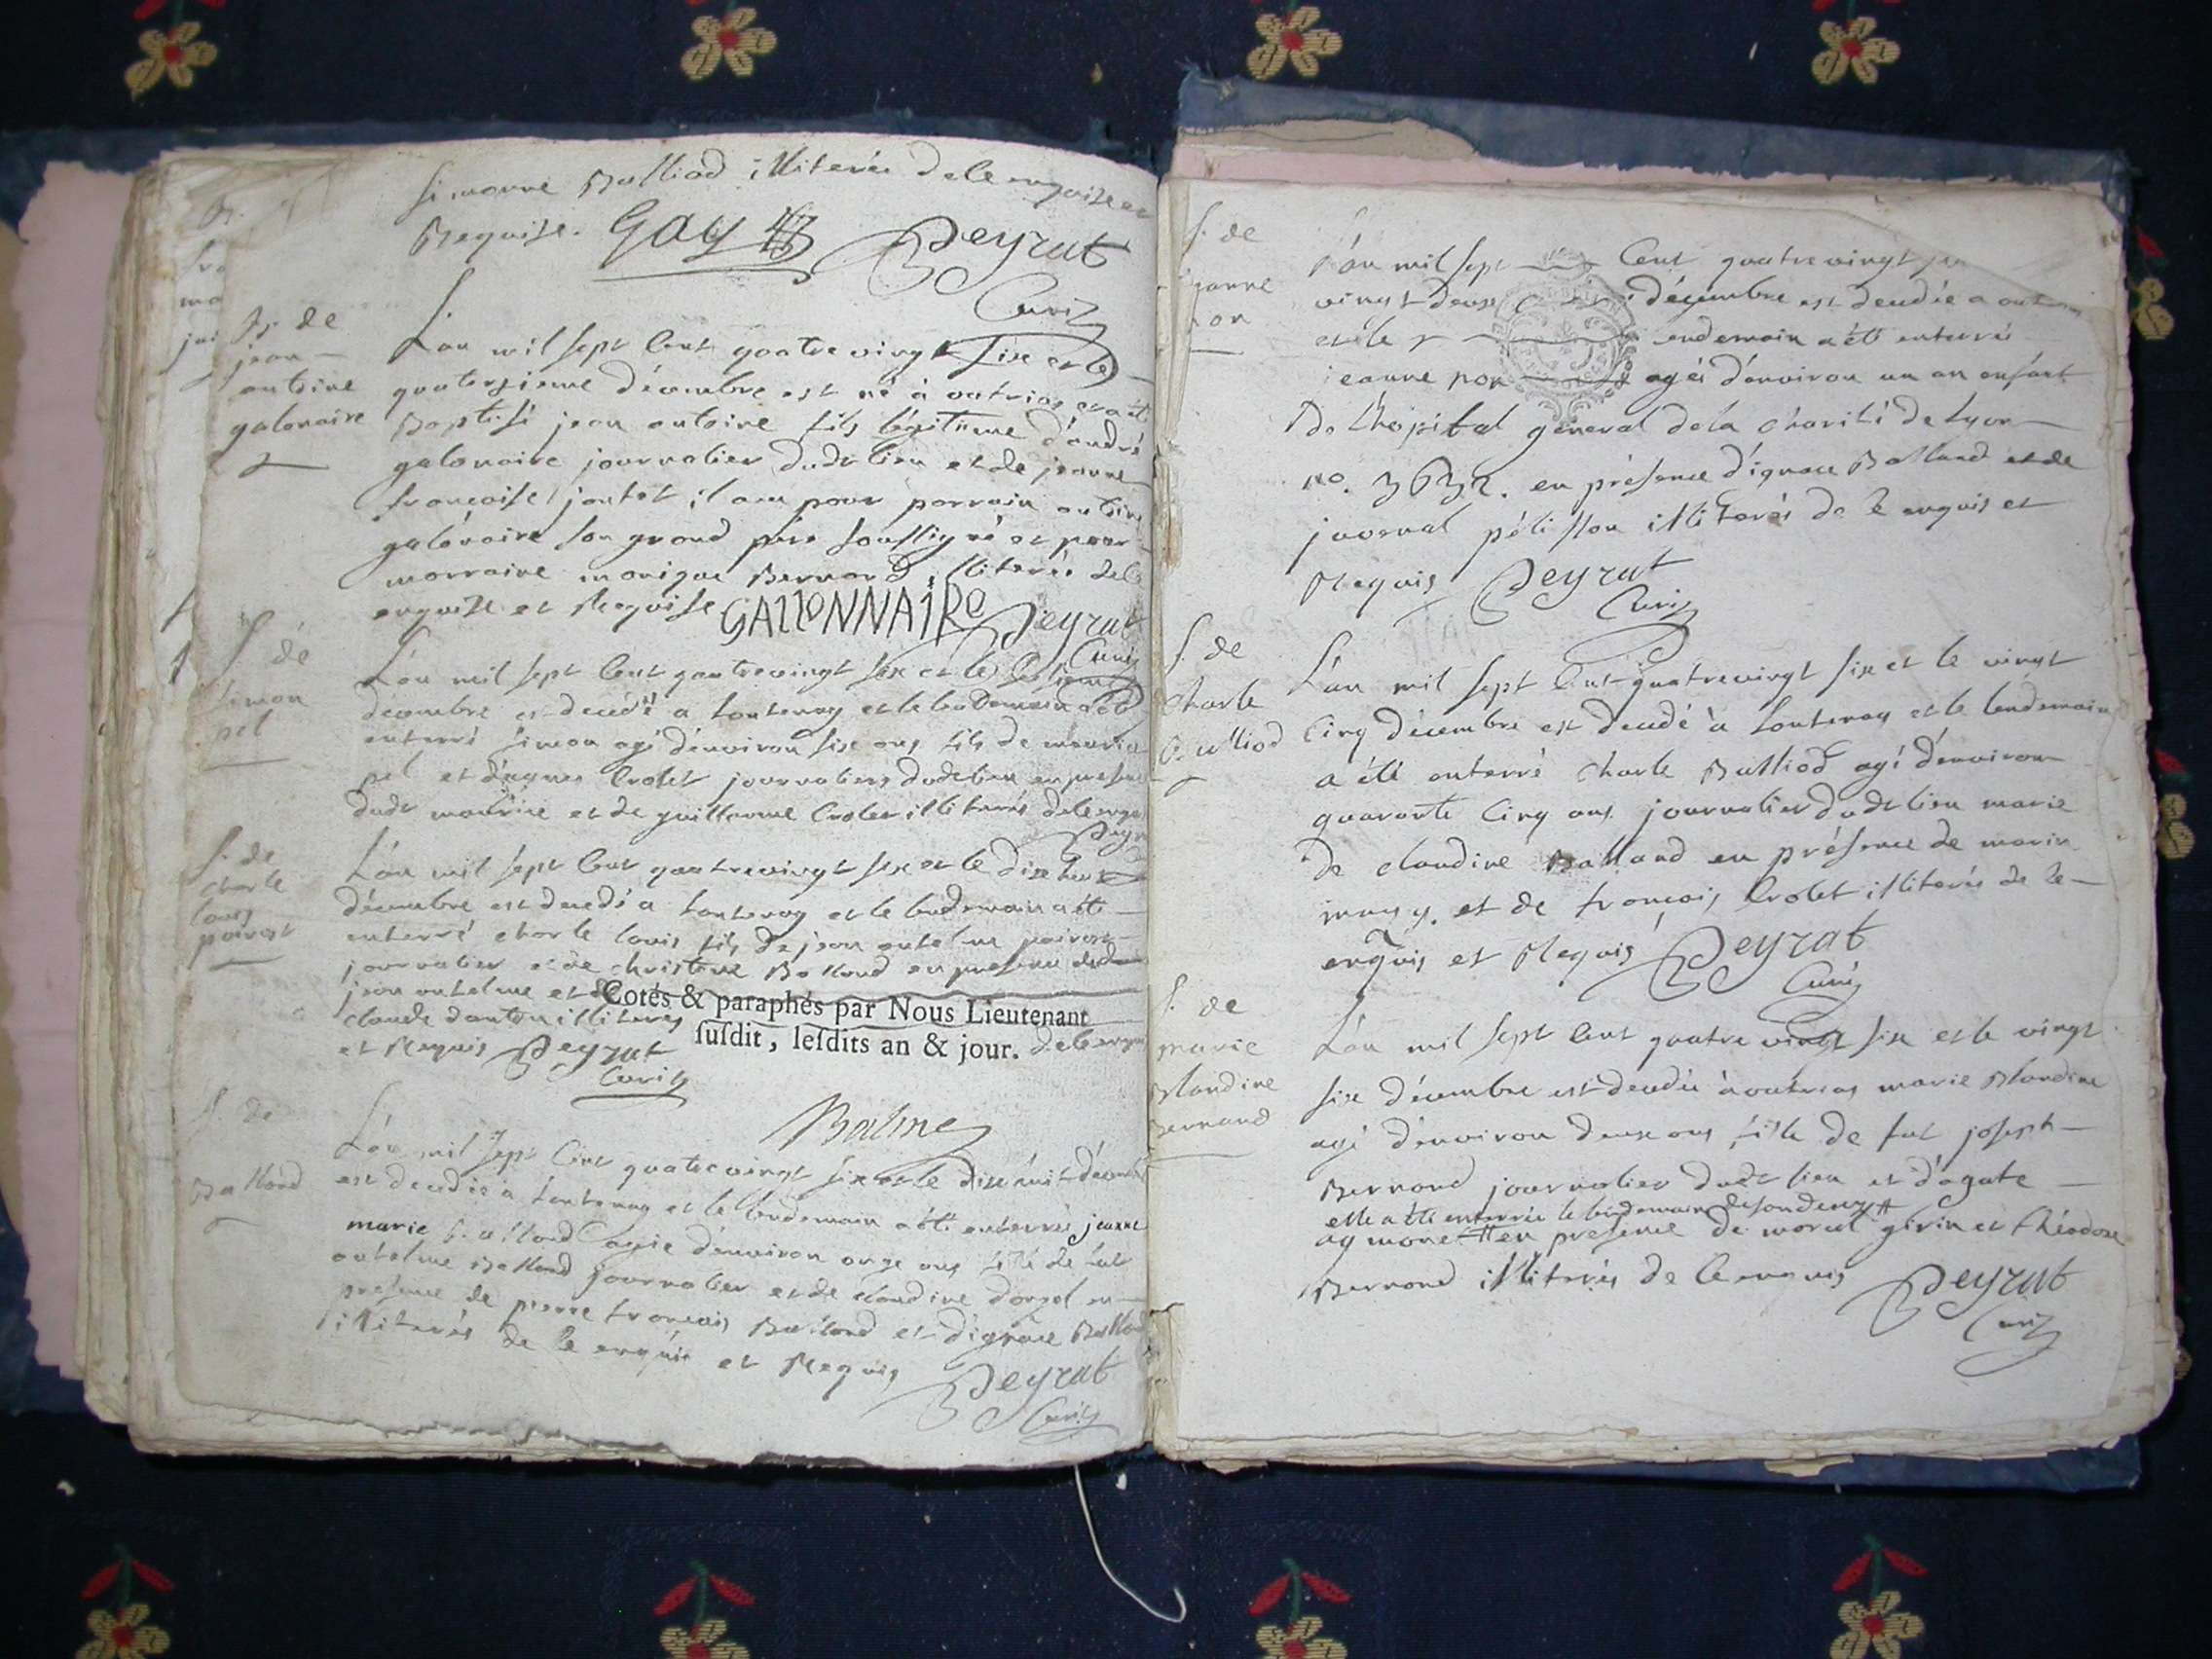 Simonne Balliod illiterée de ce enquise et
Requise. GAY Peyrat
Curé
B. de
jean
antoine
galonaire
L'an mil sept Cent quatre vingt Six et le
quatorzieme décembre est né à outrias et a été
Baptisé jean antoine fils légitime d'andré
galonaire journalier dudt lieu et de jeanne
françoise joutet il a eu pour parrain antoine
galonaire son grand père soussigné et pour
marraine monique Bernard illiterée de ce
enquise et Requise GALLONNAIRe Peyrat
Curé
S. de
simon
pel
L'an mil sept Cent quatrevingt six et le
décembre est decedé a lantenay et le lendemain a été
enterré simon agé d'environ six ans fils de maurice
pel et d'agnes Crolet journaliers dudt lieu en presence
dudt maurice et de guillaume Crolet illiterés de ce enquis
Peyrat
S. de
charle
louis
poirost
L'an mil sept Cent quatrevingt six et le dix huit
décembre est decedé a lantenay et le lendemain a été
enterré charle louis fils de jean antelme
journalier et de christine Balland en presence dudt
jean antelme et de
claude illiterés de ce enquis
et Requis Peyrat
Curé
Cotés & paraphés par Nous Lieutenant
susdit, lesdits an & jour.
Balme
S. de
Balland
L'an mil sept Cent quatre vingt six et le dix huit décembre
est decedée a lantenay et le lendemain a été enterrée jeanne
marie Balland agée d'environ onze ans fille de fut
antelme Balland journalier et de claudine dorgel en
presence de pierre françois Balland et d'ignace Balland
illiterés de ce enquis et Requis Peyrat
Curé
S. de
jeanne
non
L'an mil sept Cent quatre vingt
vingt deux décembre est decedée a outrias
et le lendemain a été enterrée
jeanne non agée d'environ un an enfant
De l'hopital géneral de la charité de Lyon
no. 3632. en présence d'ignace Balland et de
juvenal pélisson illiterés de ce enquis et
Requis Peyrat
Curé
S. de
charle
Balliod
L'an mil sept Cent quatrevingt six et le vingt
Cinq décembre est decedé à lantenay et le lendemain
a été enterré charle Balliod agé d'environ
quarante Cinq ans journalier dudt lieu marie
de claudine Balland en présence de marin
et de françois Crolet illiterés de ce
enquis et Requis Peyrat
Curé
S. de
marie
Blandine
Bernard
L'an mil sept Cent quatre vingt six et le vingt
six décembre est decedée à outrias marie Blandine
agé d'environ deux ans fille de fut joseph
Bernard journalier dudt lieu et d'agate
elle a été enterrée le lendemain de son deces #
aymonet # en presence de marcel girin et théodore
Bernard illiterés de ce enquis Peyrat
Curé